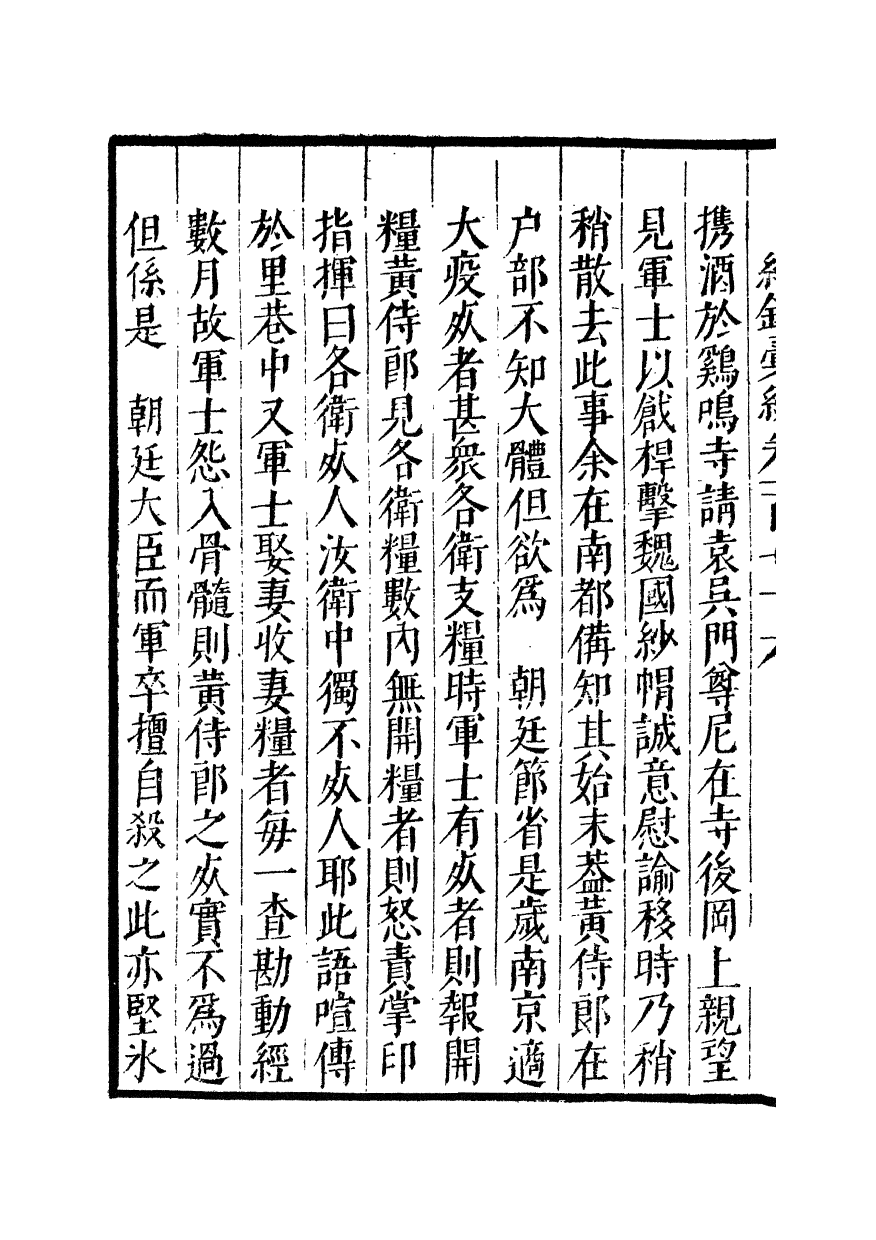 紀錄彙編卷一百七十六
携酒於鷄鳴寺請袁吳門尊尼在寺後岡上親望
見軍士以戧桿擊魏國紗帽誠意慰諭移時乃稍
稍散去此事余在南都備知其始末葢黃侍郎在
户部不知大體但欲爲　朝廷節省是歲南京適
大疫㱾者甚衆各衛支糧時軍士有㱾者則報開
糧黃侍郎見各衛糧數內無開糧者則怒責掌印
指揮曰各衛㱾人汝衛中獨不㱾人耶此語喧傳
於里巷中又軍士娶妻收妻糧者每一查勘動經
數月故軍士怨入骨髓則黃侍郎之㱾實不爲過
但係是　朝廷大臣而軍卒擅自殺之此亦堅氷